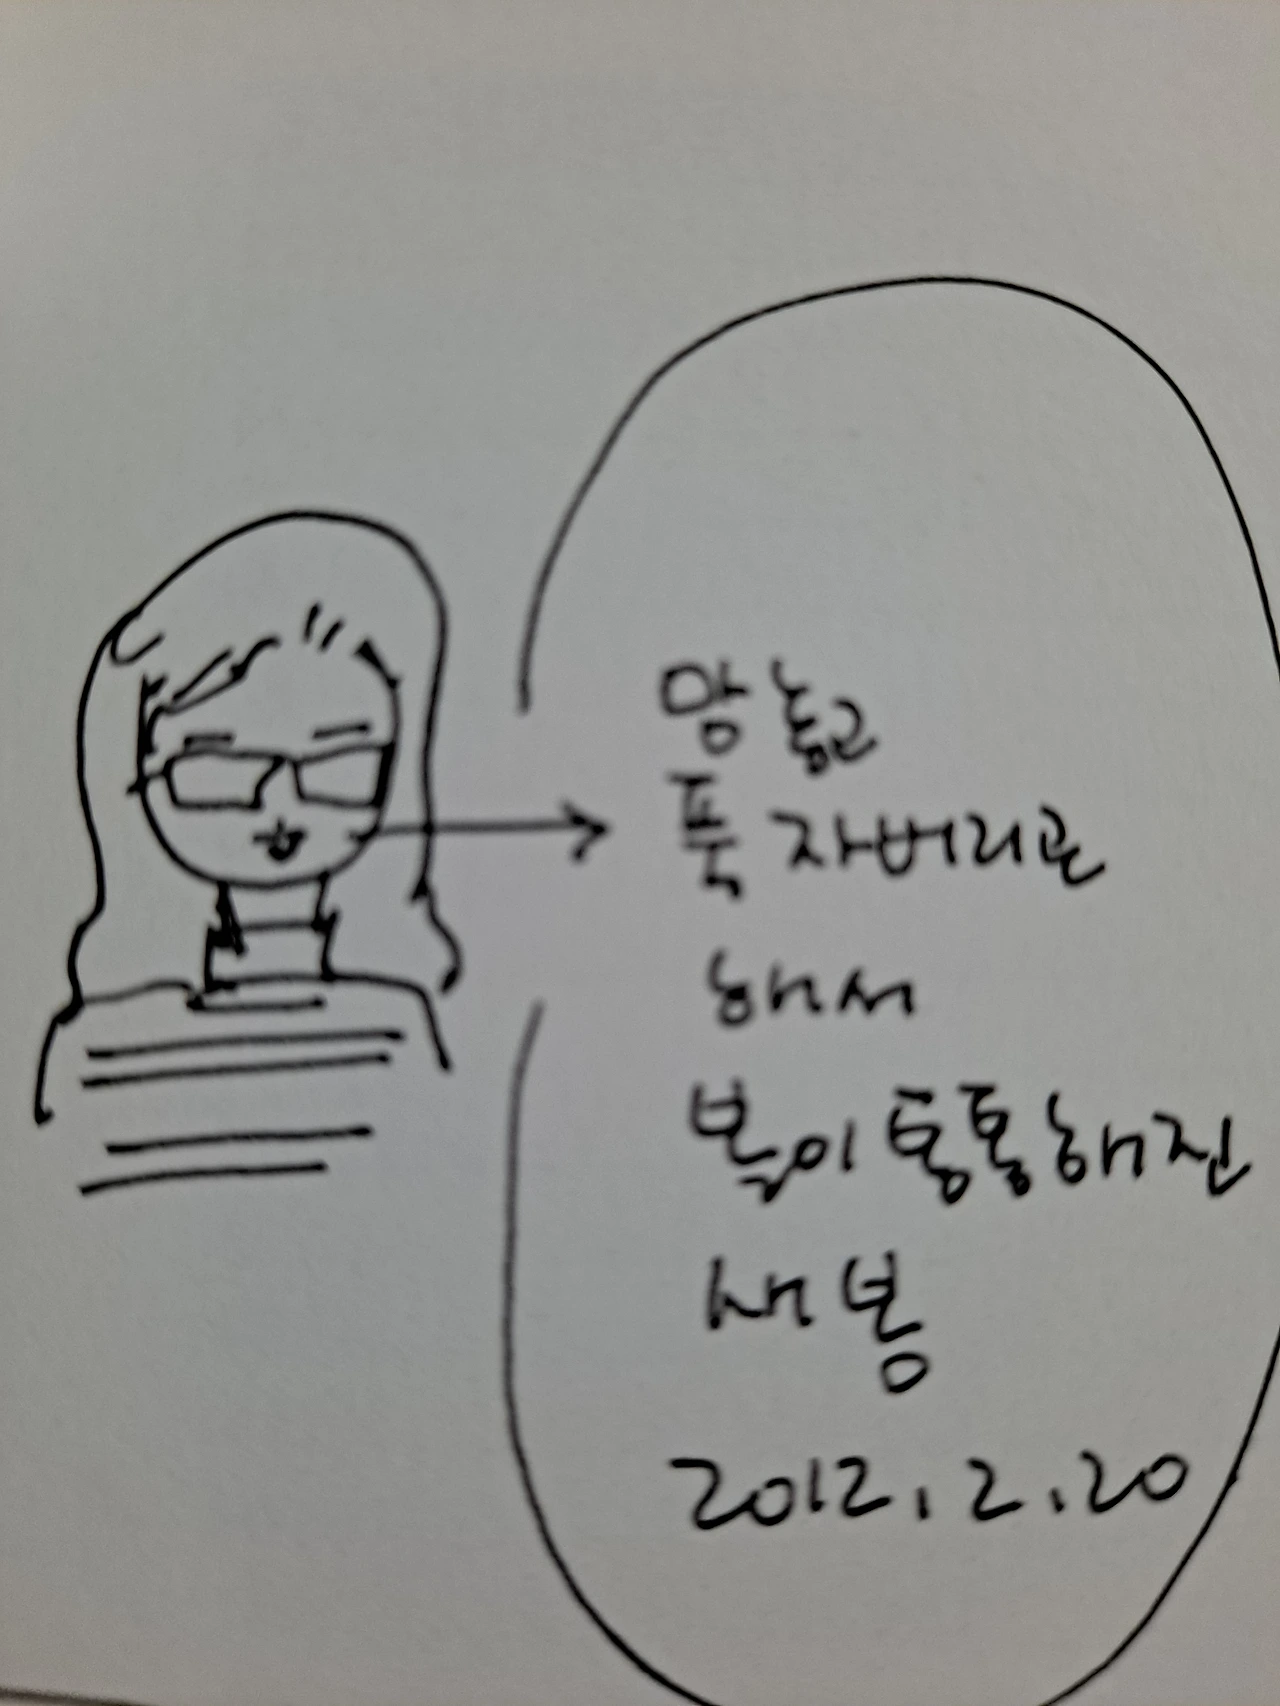 맘 놓고
푹 자버리곤
해서
볼이 통통해진
새봉
2012.2.20